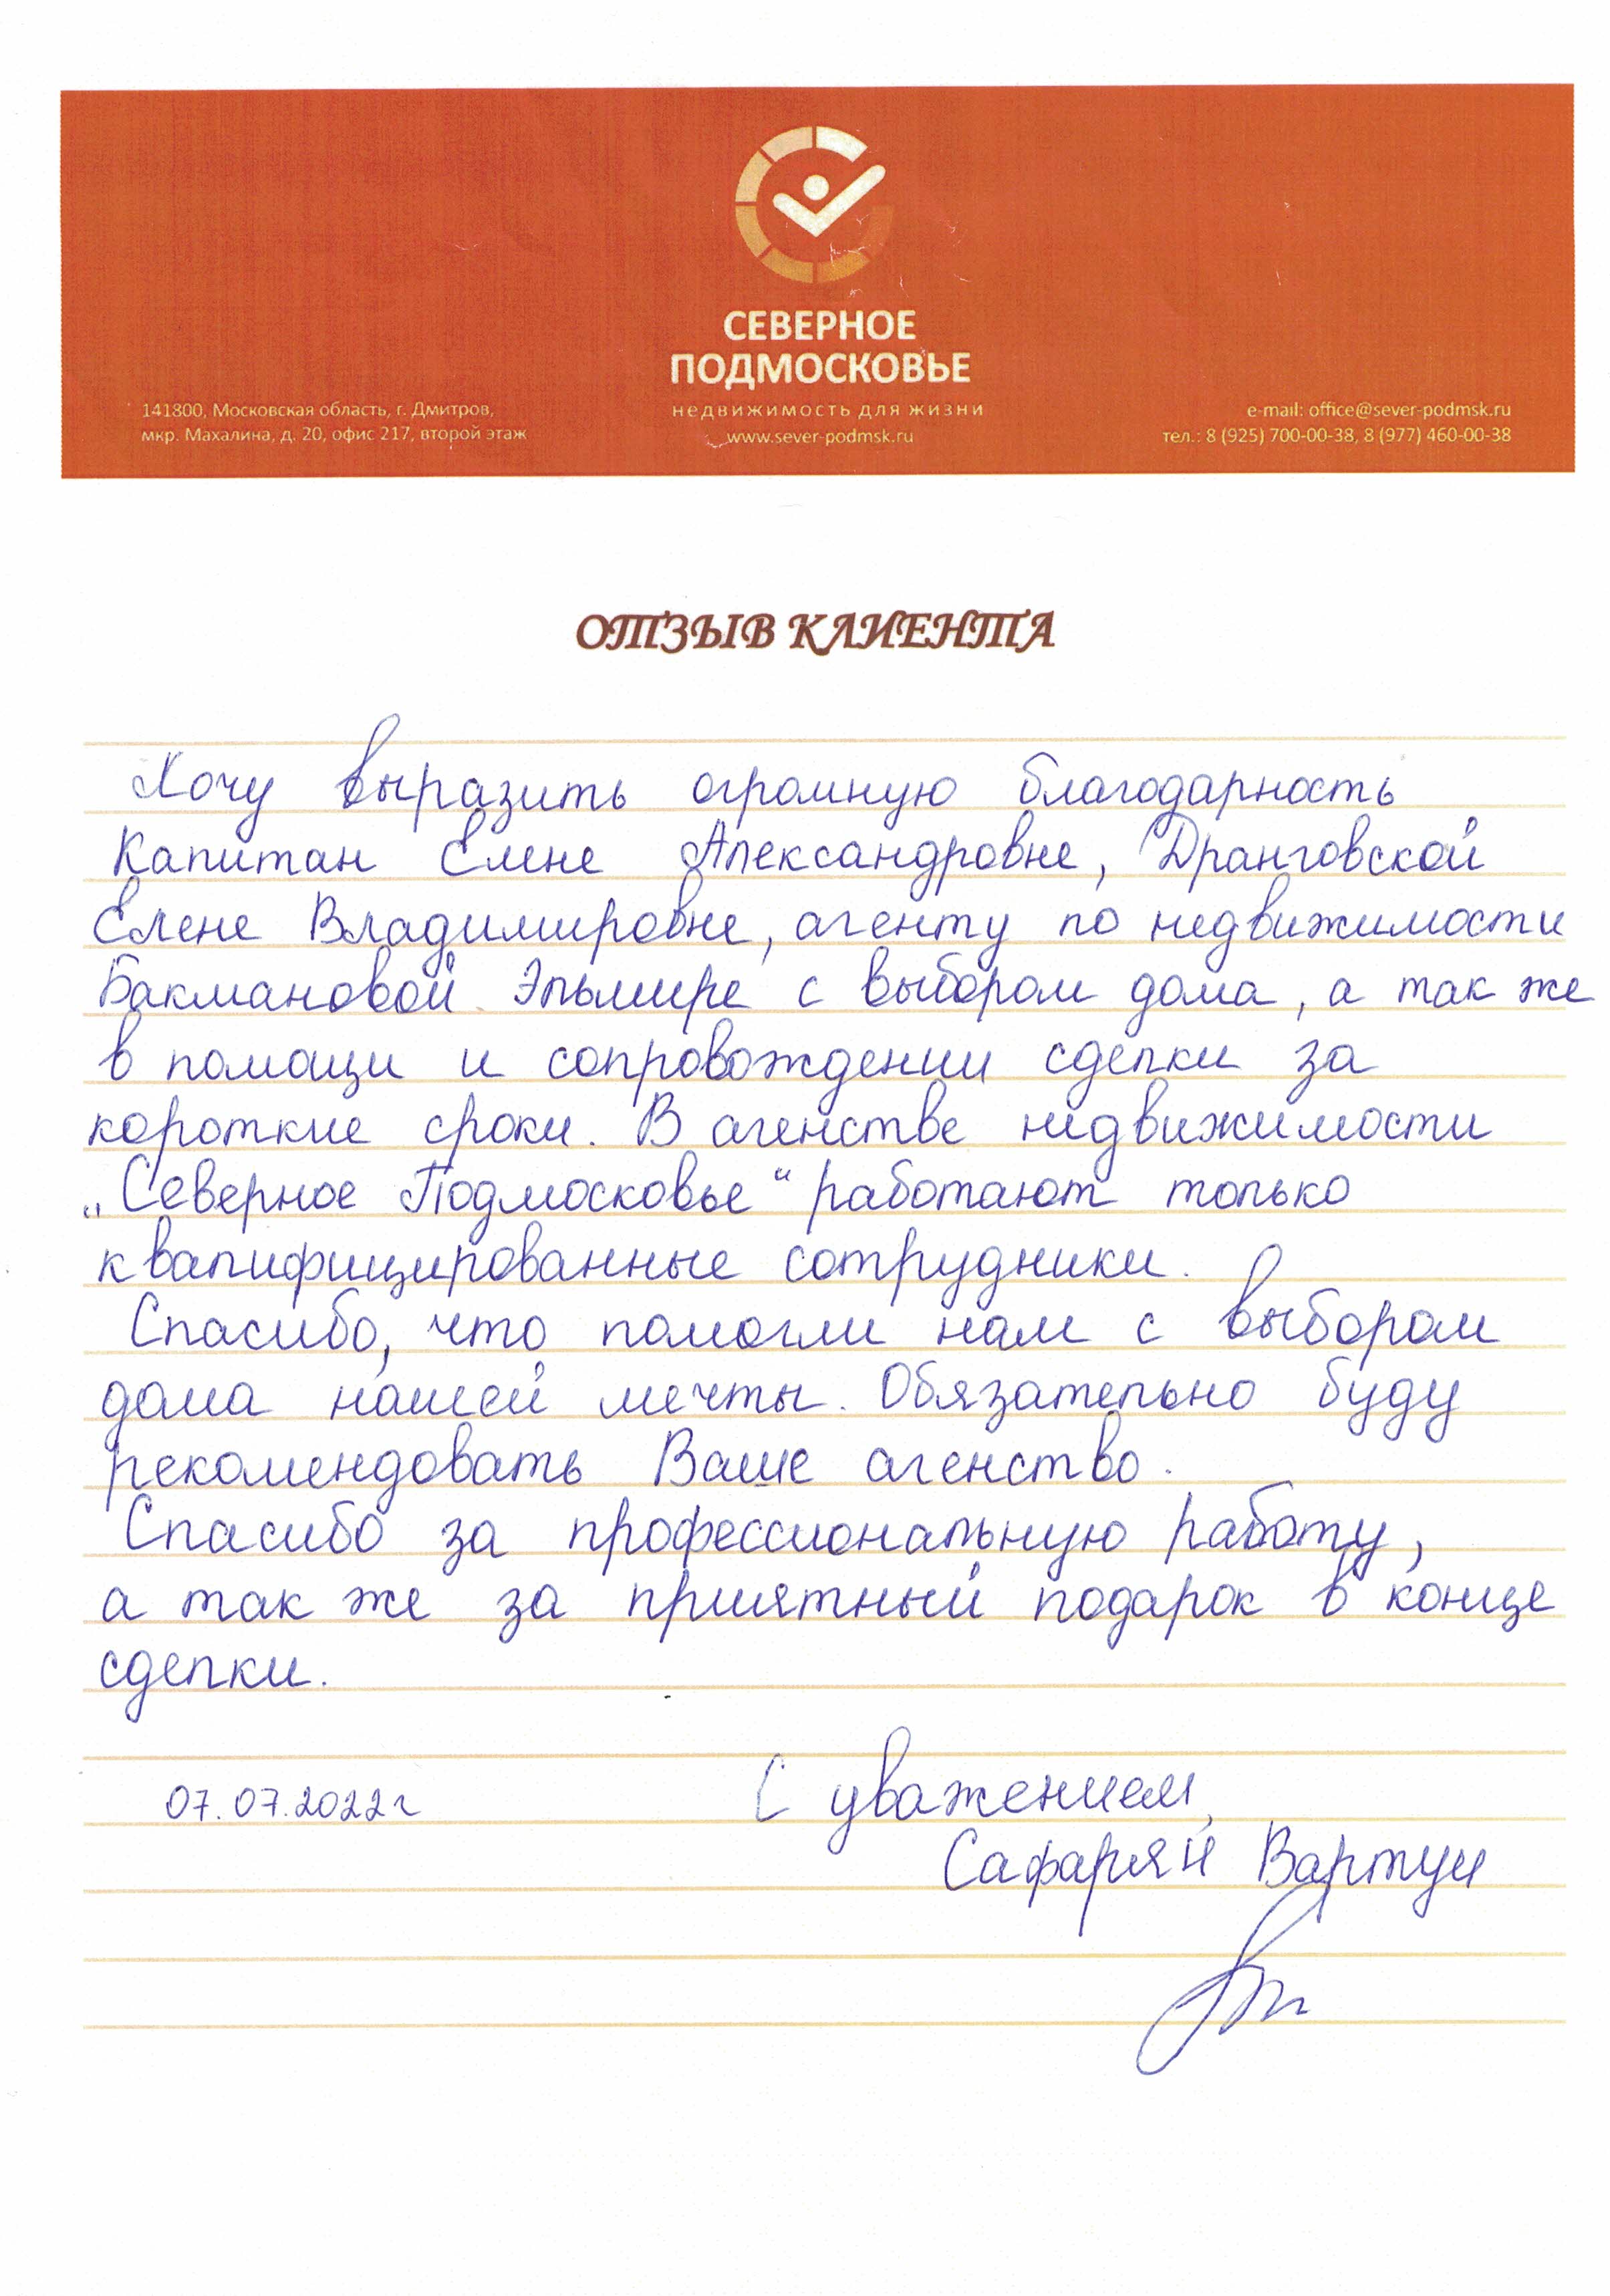 СЕВЕРНОЕ
ПОДМОСКОВЬЕ
недвижимость для жизни
www.sever-podmsk.ru
141800, Московская область, г. Дмитров,
мкр. Махалина, д. 20, офис 217, второй этаж
e-mail: office@sever-podmsk.ru
тел.: 8 (925) 700-00-38, 8 (977) 460-00-38
ОТЗЫВ КЛИЕНТА
Хочу выразить огромную благодарность
Капитан Елене Александровне, Дранговской
Елене Владимировне, агенту по недвижимости
Бакмановой Эльмире с выбором дома, а так же
в помощи и сопровождении сделки за
короткие сроки. В агенстве недвижимости
„Северное Подмосковье“ работают только
квалифицированные сотрудники.
Спасибо, что помогли нам с выбором
дома нашей мечты. Обязательно буду
рекомендовать Ваше агенство.
Спасибо за профессиональную работу,
а так же за приятный подарок в конце
сделки.
07.07.2022г С уважением,
Сафарян Вартуи